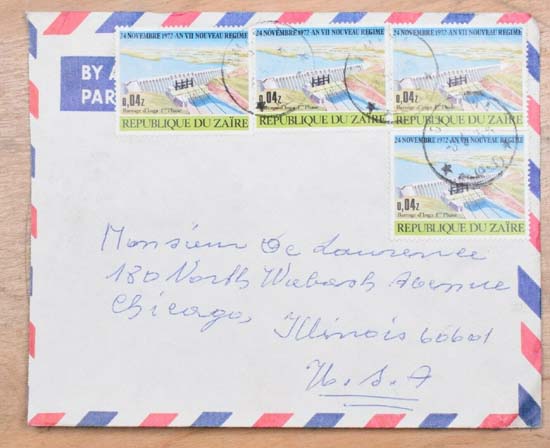 24 NOVEMBRE 1972-AN VII NOUVEAU REGIME
24 NOVEMBRE 1972-AN VII NOUVEAU REGIME
24 NOVEMBRE 1972-AN VII NOUVEAU REGIME
BY A
PAR
0,04Z
Barrage d'Inga 1ère Phase
REPUBLIQUE DU ZAÏRE
0,04Z
Barrage d'Inga 1ère Phase
REPUBLIQUE DU ZAÏRE
0,04Z
Barrage d'Inga 1ère Phase
REPUBLIQUE DU ZAÏRE
24 NOVEMBRE 1972-AN VII NOUVEAU REGIME
0,04Z
Barrage d'Inga 1ère Phase
REPUBLIQUE DU ZAÏRE
Monsieur De Laurence
180 North Wabash Avenue
Chicago, Illinois 60601
U.S.A